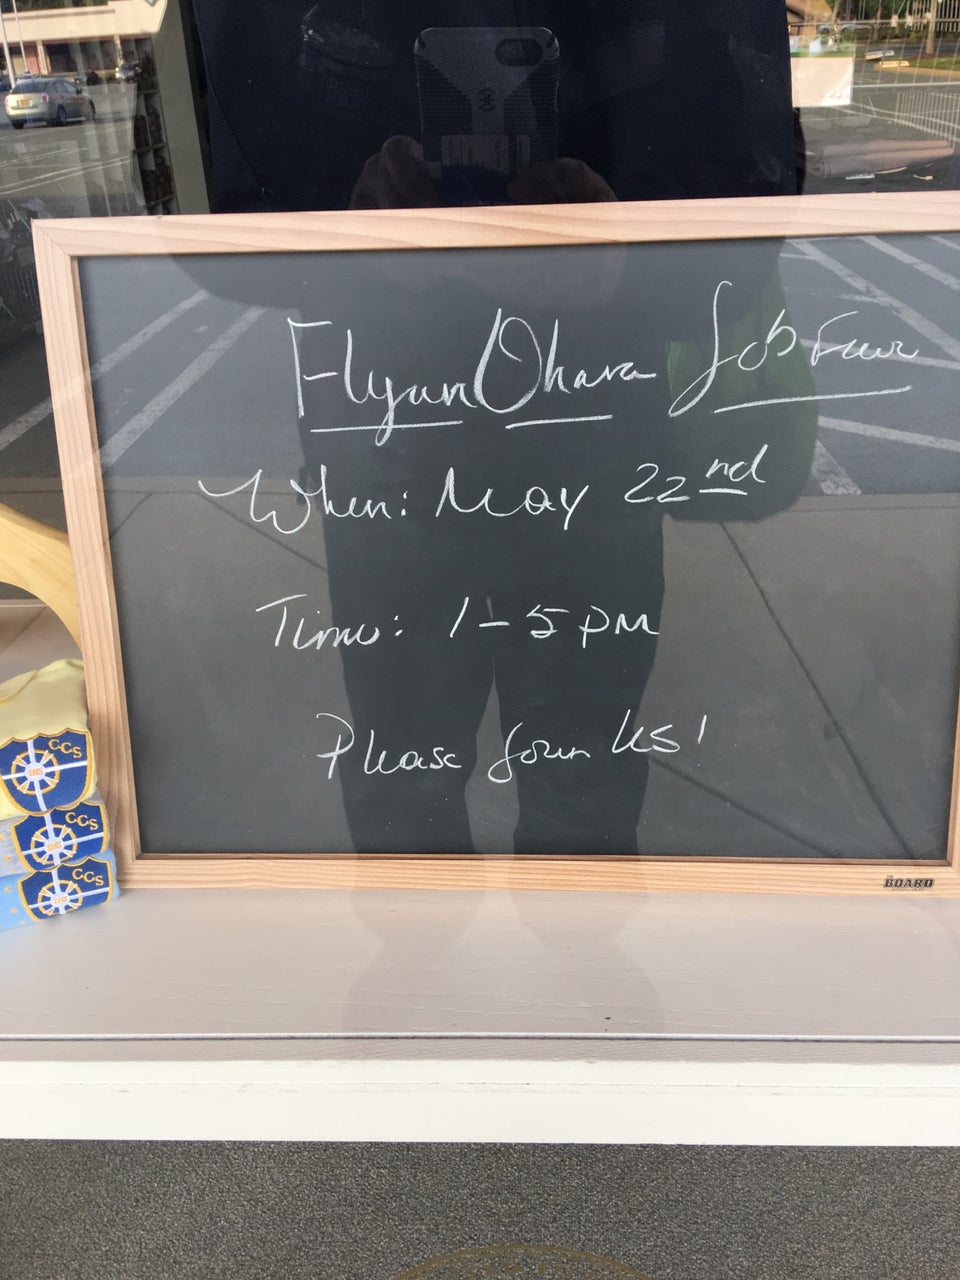 FlynnOhara Job Fair
When: May 22nd
Time: 1-5pm
Please join us!
CCS
CCS
CCS
THE
BOARD